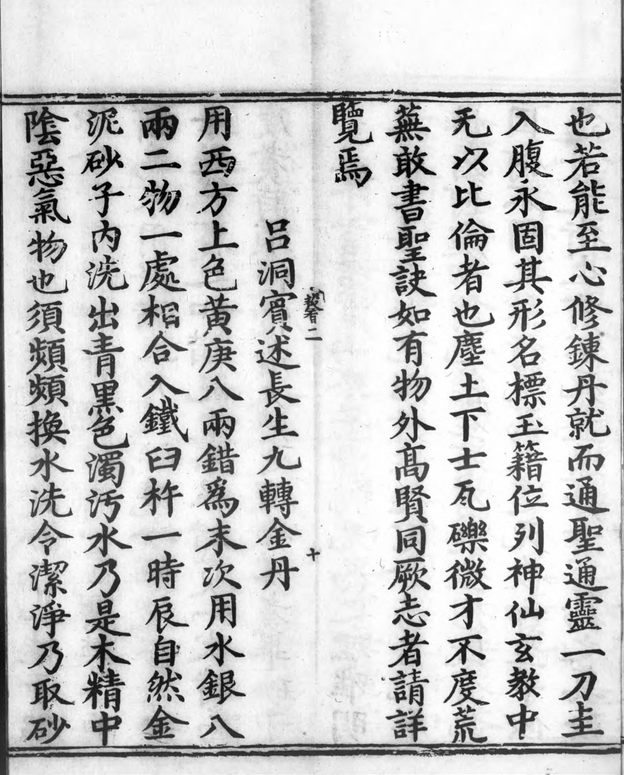 也若能至心修鍊丹就而通聖通靈一刀圭
入腹永固其形名標玉籍位列神仙玄教中
无以比倫者也塵土下士瓦礫微才不度荒
蕪敢書聖訣如有物外高賢同厥志者請詳
覽焉
十
呂洞賓述長生九轉金丹
用西方上色黃庚八兩錯爲末次用水銀八
兩二物一處相合入鐵臼杵一時辰自然金
泥砂子内洗出青黑色濁污水乃是木精中
陰惡氣物也須頻頻換水洗令潔淨乃取砂